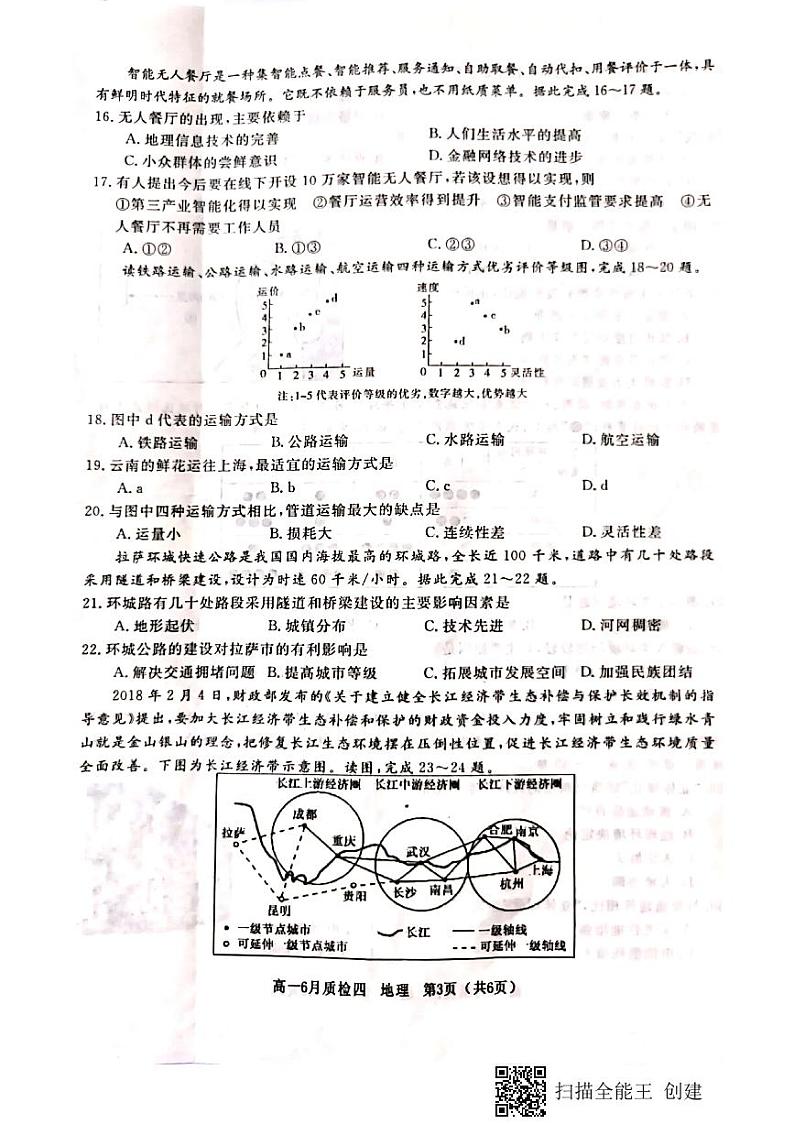 智能无人餐厅是一种集智能点餐、智能推荐、服务通知、自助取餐、自动代扣、用餐评价于一体,具
有鲜明时代特征的就餐场所。它既不依赖于服务员,也不用纸质菜单。据此完成16～17题。
16.无人餐厅的出现,主要依赖于
A.地理信息技术的完善 B.人们生活水平的提高
C.小众群体的尝鲜意识 D.金融网络技术的进步
17.有人提出今后要在线下开设10万家智能无人餐厅,若该设想得以实现,则
①第三产业智能化得以实现 ②餐厅运营效率得到提升 ③智能支付监管要求提高 ④无
人餐厅不再需要工作人员
A.①② B.①③ C.②③ D.③④
读铁路运输、公路运输、水路运输、航空运输四种运输方式优劣评价等级图,完成18～20题。
运价 速度
5 d 5 a
4 c 4 c
3 b 3 b
2 2 d
1 a 1
0 1 2 3 4 5 运量 0 1 2 3 4 5 灵活性
注:1-5代表评价等级的优劣,数字越大,优势越大
18.图中d代表的运输方式是
A.铁路运输 B.公路运输 C.水路运输 D.航空运输
19.云南的鲜花运往上海,最适宜的运输方式是
A.a B.b C.c D.d
20.与图中四种运输方式相比,管道运输最大的缺点是
A.运量小 B.损耗大 C.连续性差 D.灵活性差
拉萨环城快速公路是我国国内海拔最高的环城路,全长近100千米,道路中有几十处路段
采用隧道和桥梁建设,设计为时速60千米/小时。据此完成21～22题。
21.环城路有几十处路段采用隧道和桥梁建设的主要影响因素是
A.地形起伏 B.城镇分布 C.技术先进 D.河网稠密
22.环城公路的建设对拉萨市的有利影响是
A.解决交通拥堵问题 B.提高城市等级 C.拓展城市发展空间 D.加强民族团结
2018年2月4日,财政部发布的《关于建立健全长江经济带生态补偿与保护长效机制的指
导意见》提出,要加大长江经济带生态补偿和保护的财政资金投入力度,牢固树立和践行绿水青
山就是金山银山的理念,把修复长江生态环境摆在压倒性位置,促进长江经济带生态环境质量
全面改善。下图为长江经济带示意图。读图,完成23～24题。
长江上游经济圈 长江中游经济圈 长江下游经济圈
成都
拉萨 重庆 武汉 合肥 南京
上海
贵阳 长沙 南昌 杭州
昆明
一级节点城市 长江 一级轴线
可延伸一级节点城市 可延伸一级轴线
高一6月质检四 地理 第3页(共6页)
扫描全能王 创建